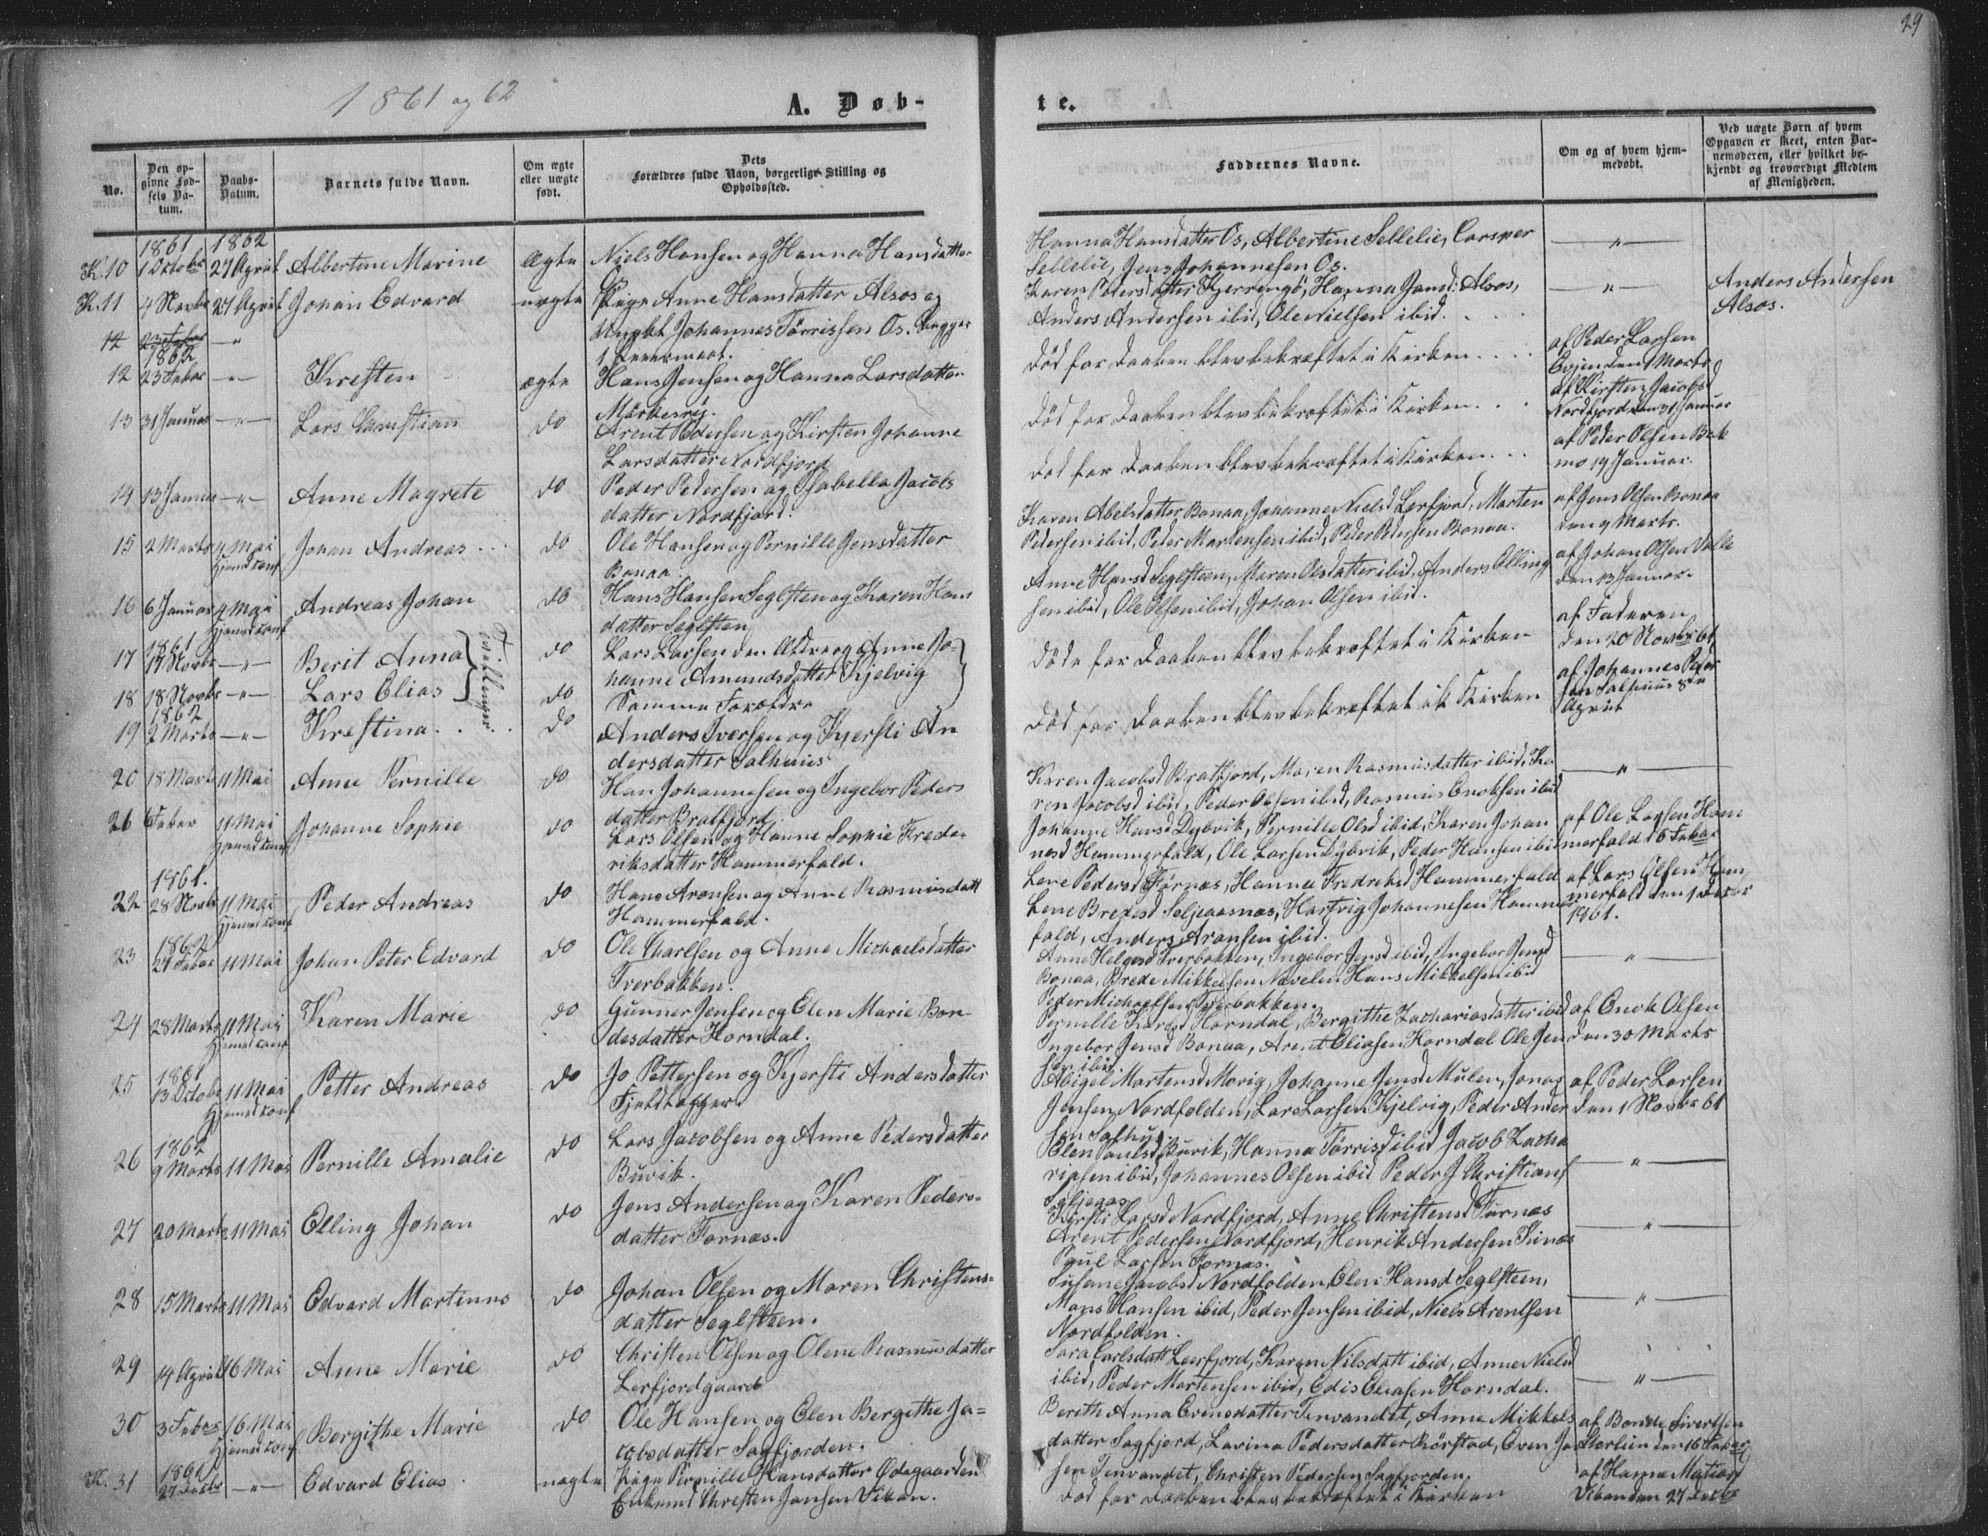 29
1861 og 62
A. Døb-
te.
No.
Den op-
givne Fød-
sels Da-
tum.
Daabs-
Datum.
Barnets fulde Navn.
Om ægte
eller uægte
født.
Dets
Forældres fulde Navn, borgerlige Stilling og
Opholdssted.
Faddernes Navne.
Om og af hvem hjem-
medøbt.
Ved uægte Børn af hvem
Opgaven er skeet, enten Bar-
nemoderen, eller hvilket be-
kjendt og troværdigt Medlem
af Menigheden.
1861 1862
K. 10 1 Octobr 27 April Albertine Marine Ægte Niels Hansen og Hanna Hansdatter
Os
Hanna Hansdatter Os, Albertine Sellelie, Carsper
Sellelie, Jens Johannesen Os.
K. 11 4 Novbr 27 April Johan Edvard uægte Pige Anne Hansdatter Alsos og
Ungkl Johannes Tørrissen Os. Begges
1 Leiermaal.
Karen Pedersdatter Kjerringø, Hanna Jansd. Alsos,
Anders Andersen ibid, Ole Nielsen ibid.
Anders Andersen
Alsos.
12 23 Febar
1862
12 23 Febar Kresten ægte Hans Jensen og Hanna Larsdatter
Mørkesvig.
Død før Daaben blev bekræftet i Kirken
af Peder Larsen
Evjen den 1 Marts
13 31 Januar Lars Christian do Arent Pedersen og Kirsten Johanne
Larsdatter Nordfjord
Død før Daaben blev bekræftet i Kirken
af Kirsten Jacobsd
Nordfjord den 31 Januar
14 13 Januar Anne Magrete do Peder Petersen og Isabella Jacobs
datter Nordfjord.
Død før Daaben blev bekræftet i Kirken
af Peder Olsen Bak
mo 19 Januar.
15 2 Marts 4 Mai Johan Andreas do Ole Hansen og Pernille Jensdatter
Hjemed conf Bonaa.
Karen Abelsdatter Bonaa, Johanna Nielsd Lerfjord, Morten
Pedersen ibid, Peder Martensen ibid, Peder Pedersen Bonaa.
af Jens Olsen Bonaa
den 9 Marts.
16 6 Januar 4 Mai Andreas Johan do Hans Hansen Seglsten og Karen Hans
Hjemed conf datter Seglsten
Anne Hansd Seglsteen, Maren Olsdatter ibid, Anders Elling
sen ibid, Ole Olsen ibid, Johan Olsen ibid.
af Johan Olsen Valle
den 13 Januar.
1861
17 17 Novbr Berit Anna do Lars Larsen den Ældre og Anne Jo-
hanne Amundsdatter Kjelvig
Tvillinger
Døde før Daaben blev bekræftet i Kirken
af Faderen
den 20 Novbr 61
18 18 Novbr Lars Elias do Samme Forældre
1862
19 2 Marts Krestina do Anders Iversen og Kjersti An
dersdatter Salhuus
Død før Daaben blev bekræftet i Kirken
af Johannes Peder
sen Salhuus 8de
April
20 18 Marts 11 Mai Anne Pernille do Han Johannesen og Ingebor Peders
datter Bratfjord
Karen Jacobsd Bratfjord, Maren Rasmusdatter ibid, Ka
ren Jacobsd ibid, Peder Olsen ibid, Rasmus Enoksen ibid
21 6 Febar 11 Mai Johanne Sophie do Lars Olsen og Hanne Sophie Frede-
Hjemed conf riksdatter Hammerfald.
Johanne Hansd Dybvik, Pernille Olsd ibid, Karen Johan
nesd Hammerfald, Ole Larsen Dybvik, Peder Hansen ibid
af Ole Larsen Ham
merfald 16 Febar
1861.
22 28 Novbr 11 Mai Peder Andreas do Hans Aronsen og Anne Rasmusdatt
Hjemed conf Hammerfald.
Lene Pedersd Fornæs, Hanna Fredriksd Hammerfald
Lene Bredesd Seljeaasnæs, Hartvig Johannesen Hammer
fald, Anders Aronsen ibid.
af Lars Olsen Ham
merfald den 1 Decbr
1861.
1862
23 27 Febar 11 Mai Johan Peter Edvard do Ole Caarlsen og Anne Michaelsdatter
Tverbakken.
Anne Helgesd Tverbakken, Ingebor Jensd ibid, Ingebor Jensd
Bonaa, Brede Mikkelsen Nævelen Hans Mikkelsen ibid
Peder Michaelsen Tverbakken.
24 28 Marts 11 Mai Karen Marie do Gunner Jensen og Elen Marie Bon-
Hjemed conf desdatter Horndal.
Pernille Hansd Horndal, Bergithe Zachariasdatter ibid
Ingebor Jensd Bonaa, Arent Eliasen Horndal Ole Jen
sen ibid
af Enok Olsen
den 30 Marts
1861
25 13 Octobr 11 Mai Petter Andreas do Jo Pettersen og Kjersti Andersdatter
Hjemed conf
Abigel Martensd Mørig, Johanne Jensd Mulen, Jonas
Jensen Nordfolden, Lars Larsen Kjelvig, Peder Ander
sen Salhus
af Peder Larsen
den 1 Novbr 61
1862
26 9 Marts 11 Mai Pernille Amalie do Lars Jacobsen og Anne Pedersdatter
Buvik.
Elen Paulsd Buvik, Hanna Tørrisd ibid Jacob Zacha
riasen ibid, Johannes Olsen ibid Peder J Christians
Seljeaas
27 20 Marts 11 Mai Elling Johan do Jens Andersen og Karen Peders-
datter Fornæs.
Kjersti Larsd Nordfjord, Anne Christensd Fornæs
Arent Pedersen Nordfjord, Henrik Andersen Finnæs
Paul Larsen Fornæs.
28 15 Marts 11 Mai Edvard Martinus do Johan Olsen og Maren Christens-
datter Seglsteen.
Susane Jacobsd Nordfolden Elen Hansd Seglsteen,
Mons Hansen ibid, Peder Jensen ibid, Niels Arentsen
Nordfolden.
29 14 April 16 Mai Anne Marie do Christen Olsen og Olene Rasmusdatter
Lerfjordgaard
Sara Carlsdatt Leerfjord, Karen Nilsdatt ibid, Anne Nielsd
ibid, Peder Mortensen ibid, Edis Eliasen Horndal.
30 3 Febar 16 Mai Bergithe Marie do Ole Hansen og Elen Bergithe Ja-
Hjemed conf cobsdatter Sagfjorden.
Berith Anna Evensdatter Tenvandet, Anne Mikkels
datter Sagfjord, Lavina Pedersdatter Rørstad, Even Jo
sen Tenvandet, Christen Pedersen Sagfjorden.
af Bonde Sivertsen
Storlien den 16 Febar
1861
K. 31 27 Decbr Edvard Elias uægte Pige Pernille Hansdatter Ødegaarden
Enkemd Christen Jansen Vikan.
Død før Daaben blev bekræftet i Kirken
af Hanna
Vikan den 27 Decbr